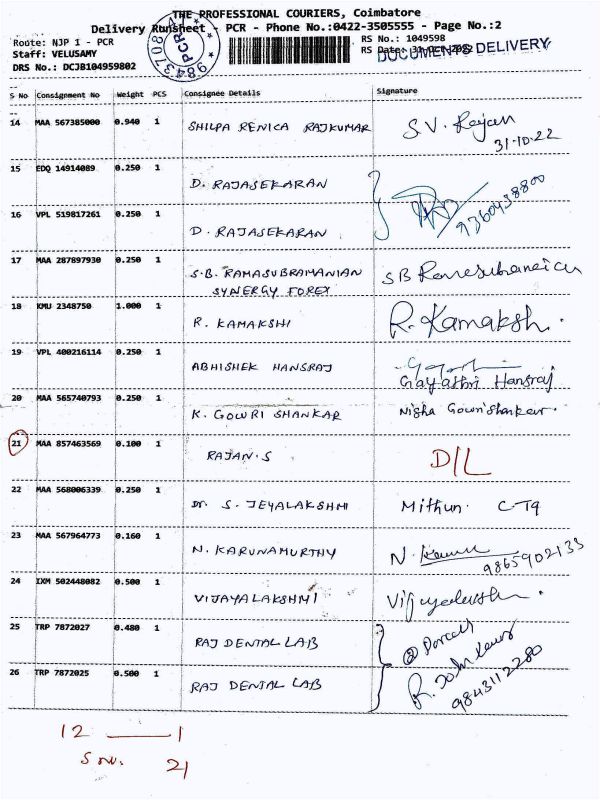 THE PROFESSIONAL COURIERS, Coimbatore
Delivery Runsheet - PCR - Phone No.:0422-3505555 - Page No.:2
Route: NJP 1 - PCR
RS No.: 1049598
Staff: VELUSAMY
RS Date: 31-OCT-2022
DOCUMENTS DELIVERY
DRS No.: DCJB104959802
PCR
S No Consignment No Weight PCS Consignee Details Signature
14 MAA 567385000 0.940 1 SHILPA RENICA RAJKUMAR S.V. Rajan
31-10-22
15 EDQ 14914089 0.250 1 D. RAJASEKARAN
9360438800
16 VPL 519817261 0.250 1 D. RAJASEKARAN
17 MAA 287897930 0.250 1 S.B. RAMASUBRAMANIAN
SYNERGY FOREX
18 KMU 2348750 1.000 1 R. KAMAKSHI R. Kamakshi.
19 VPL 400216114 0.250 1 ABHISHEK HANSRAJ
Gayathri Hansraj
20 MAA 565740793 0.250 1 K. GOWRI SHANKAR Nisha Gowrishankar.
21 MAA 857463569 0.100 1 RAJAN.S D/L
22 MAA 568006339 0.250 1 Dr. S. JEYALAKSHMI Mithun. C-T9
23 MAA 567964773 0.160 1 N. KARUNAMURTHY
9865902133
24 IXM 502448082 0.500 1 VIJAYALAKSHMI
25 TRP 7872027 0.480 1 RAJ DENTAL LAB
26 TRP 7872025 0.500 1 RAJ DENTAL LAB
9843112280
12 — 1
21